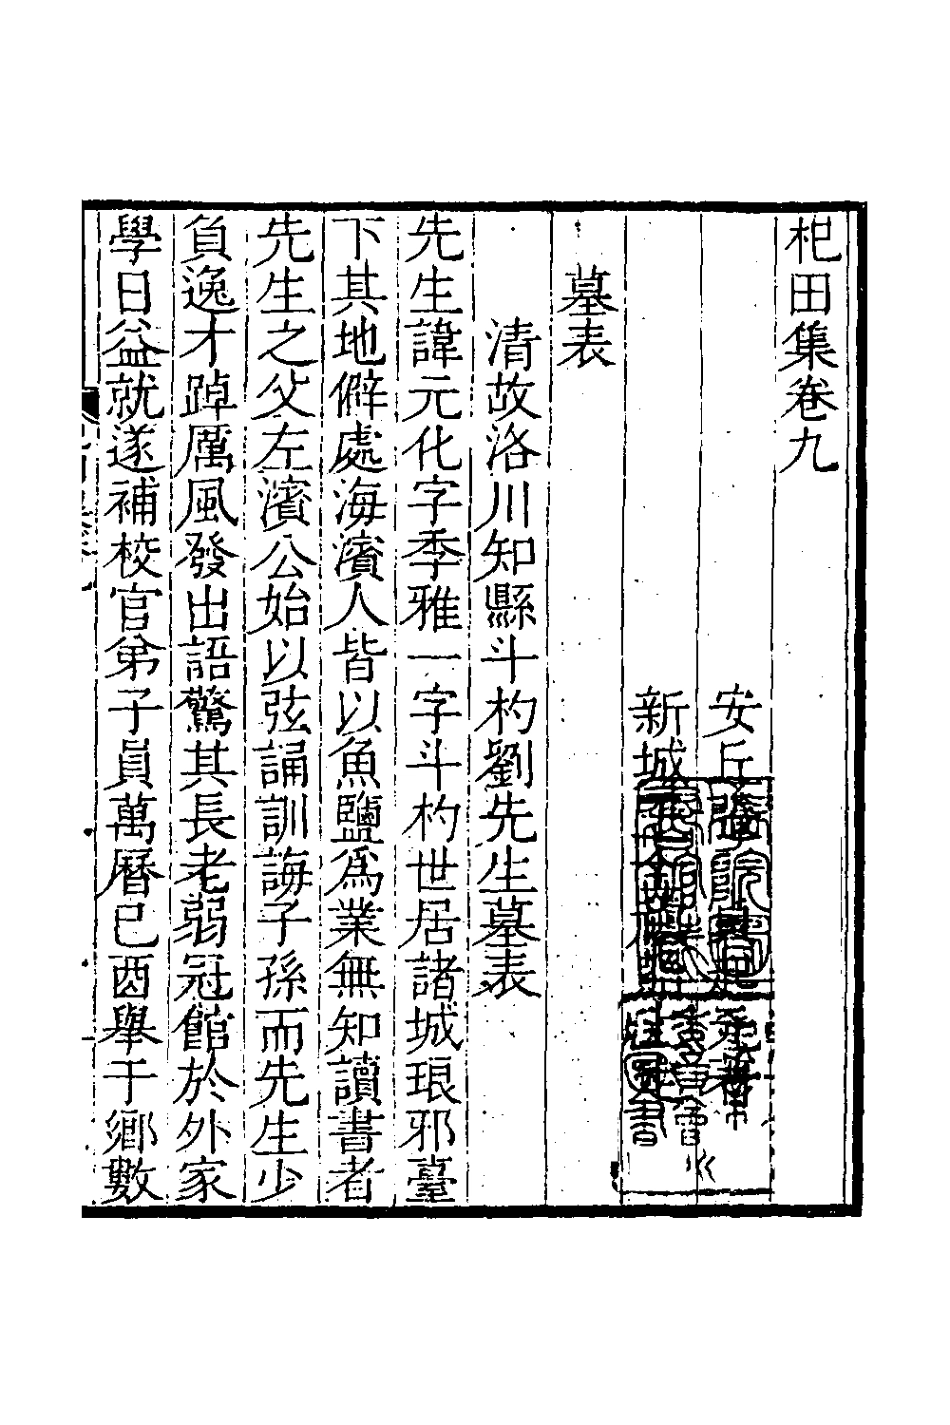 杞田集卷九
安丘張貞起元著
新城王
墓表
清故洛川知縣斗杓劉先生墓表
先生諱元化字季雅一字斗杓世居諸城琅邪臺
下其地僻處海濱人皆以魚鹽爲業無知讀書者
先生之父左濱公始以弦誦訓誨子孫而先生少
負逸才踔厲風發出語驚其長老弱冠館於外家
學日益就遂補校官弟子員萬曆己酉舉于鄉數